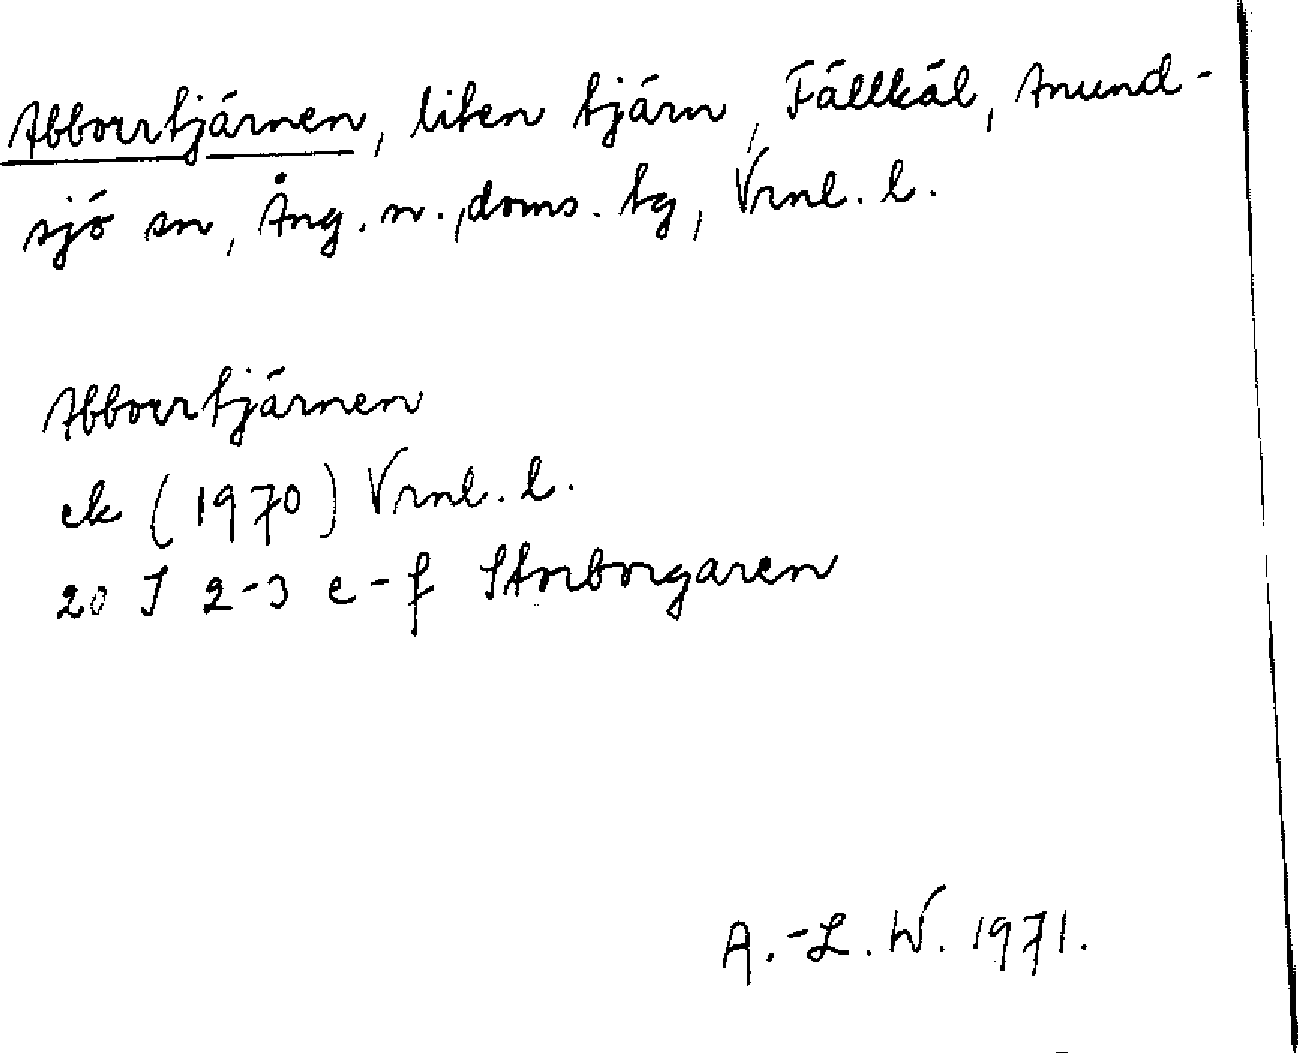 Abborrtjärnen, liten tjärn, Fällkäl, Anund-
sjö sn, Ång. n., doms. tg, Vrnl. l.
Abborrtjärnen
ek (1970) Vrnl. l.
20 J 2-3 e-f Storborgaren
A.-L. W. 1971.